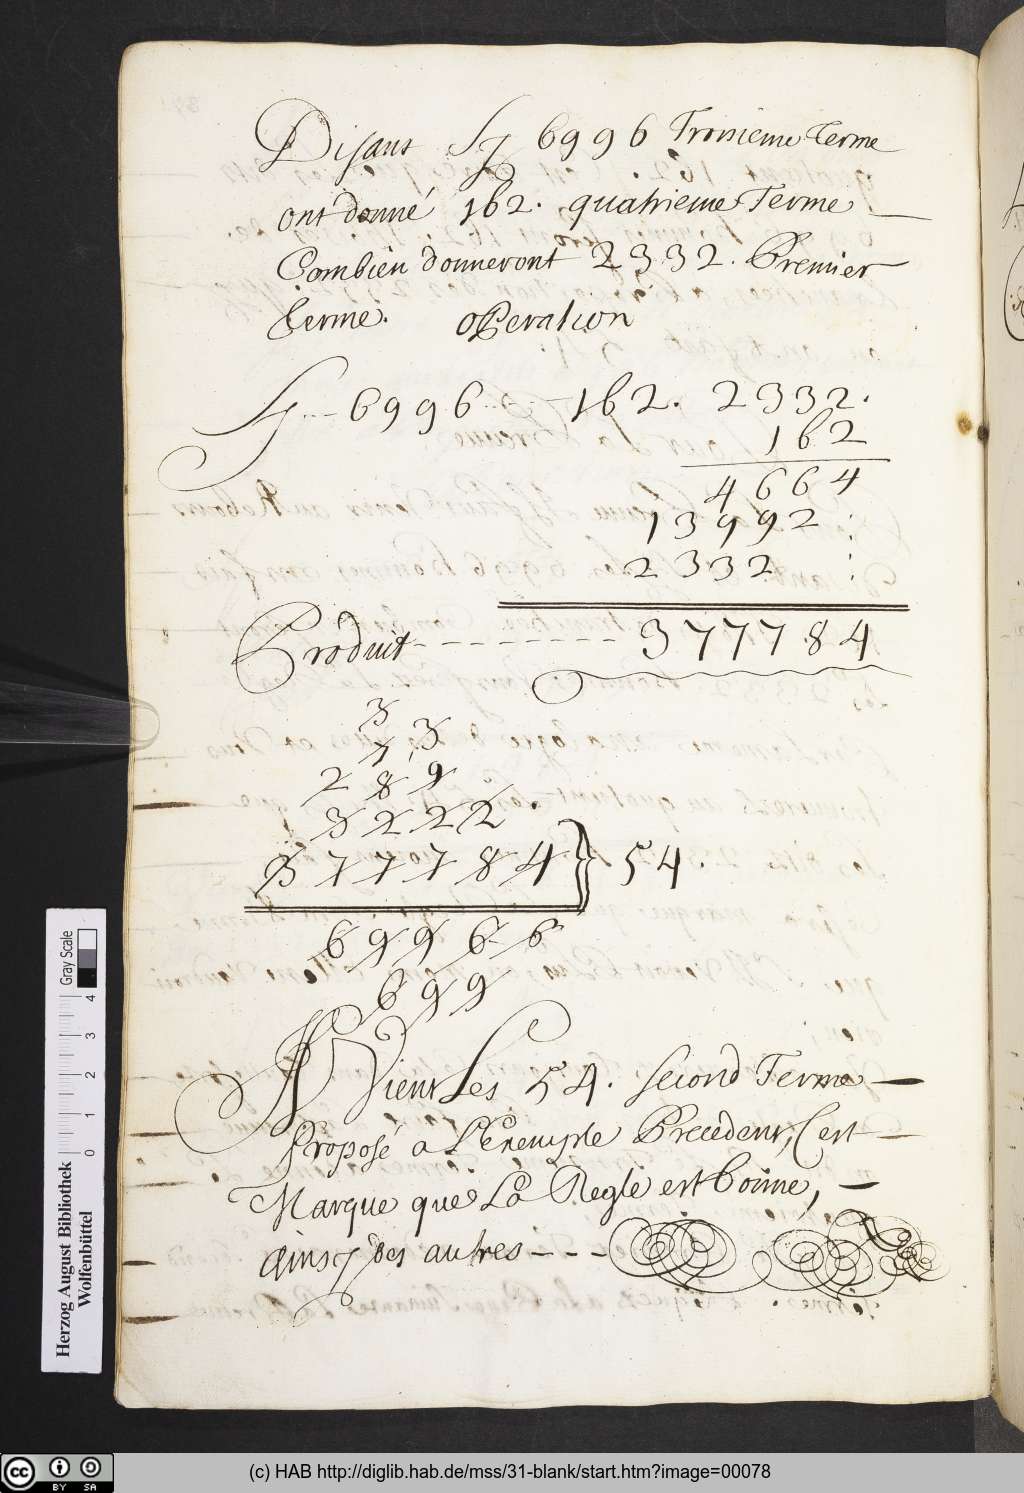 Disant Sy 6996 Troisieme Terme
ont donné 162. quatrieme Terme
Combien donneront 2332. Premier
terme. oPeration
Sy --- 6996 --- 162. 2332.
162
4664
13992 :
2332 :
Produit - - - - - - - - 377784
3
7 3
2 8 9
3 2 2 2 .
3 7 7 7 8 4 } 54.
6 9 9 6 6
6 9 9
Vient Les 54. second Terme
Proposé a L'Exemple Precedent, C'est
Marque que La Regle est bonne,
ainsy des autres - - -
Herzog August Bibliothek
Wolfenbüttel
0 1 2 3 4
Gray Scale
CC BY SA
(c) HAB http://diglib.hab.de/mss/31-blank/start.htm?image=00078